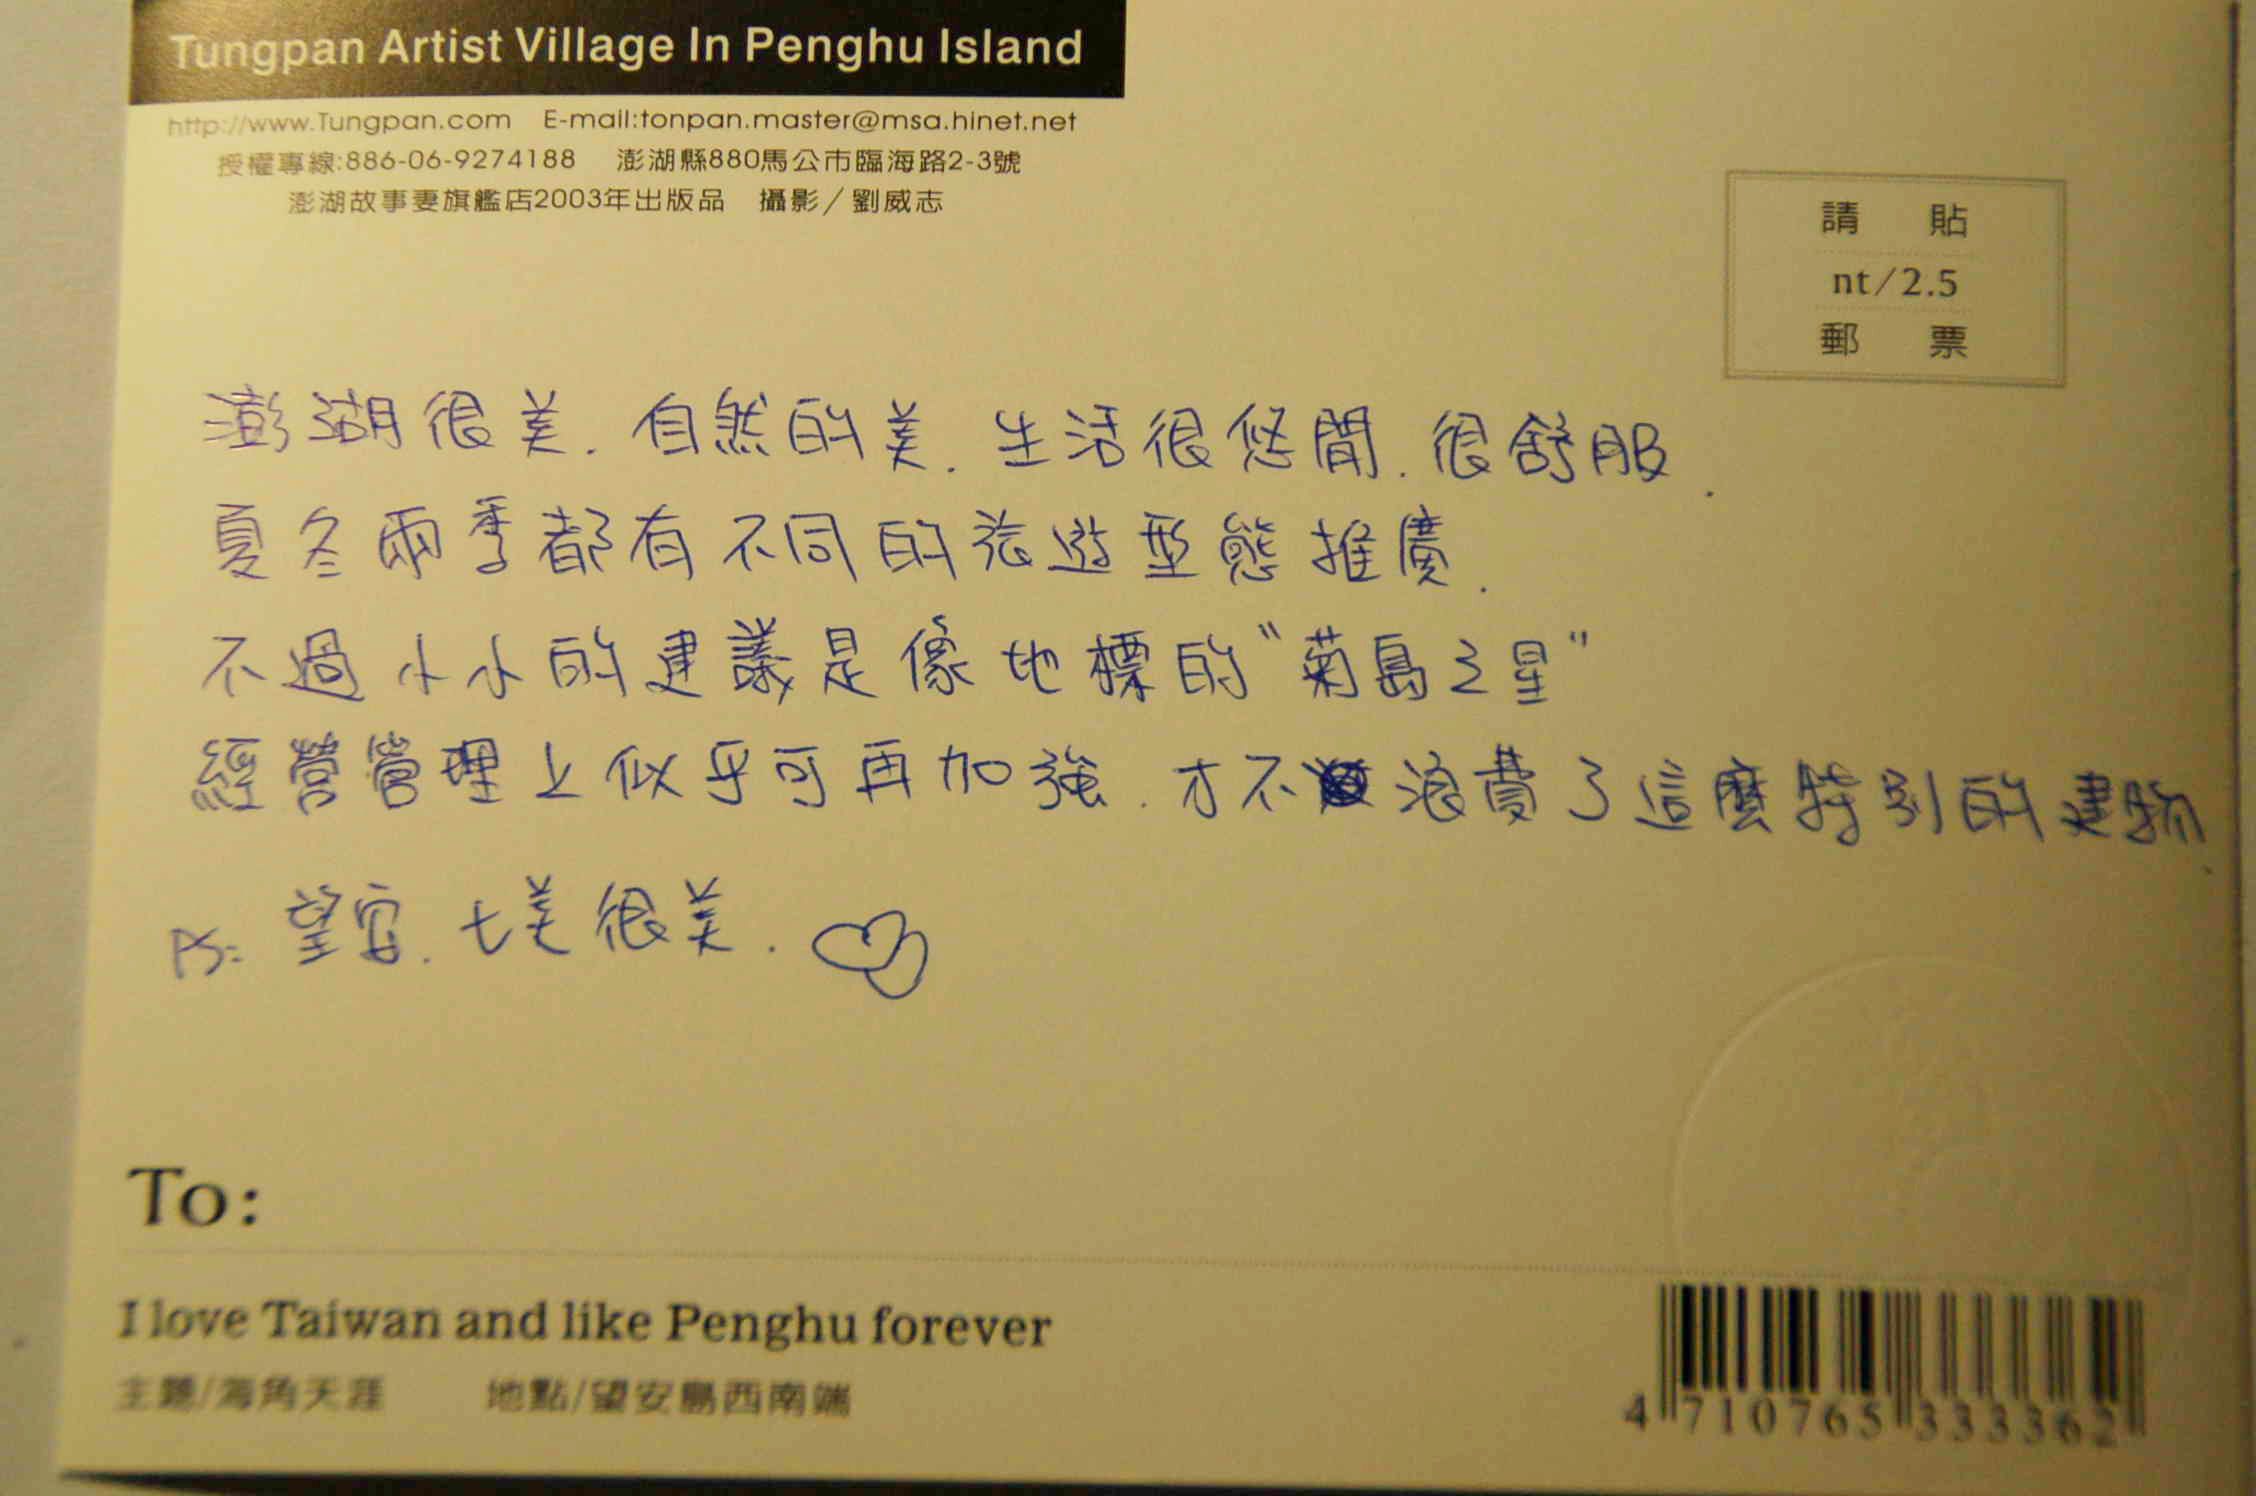 Tungpan Artist Village In Penghu Island
http://www.Tungpan.com E-mail:tonpan.master@msa.hinet.net
授權專線:886-06-9274188 澎湖縣880馬公市臨海路2-3號
澎湖故事妻旗艦店2003年出版品 攝影／劉威志
請 貼
nt/2.5
郵 票
澎湖很美.自然的美.生活很悠閒.很舒服.
夏冬兩季都有不同的旅遊型態推廣.
不過小小的建議是像地標的"菊島之星"
經營管理上似乎可再加強.才不浪費了這麼特別的建物.
PS: 望安.七美很美.
To:
I love Taiwan and like Penghu forever
主題/海角天涯 地點/望安島西南端
4 710765 333362